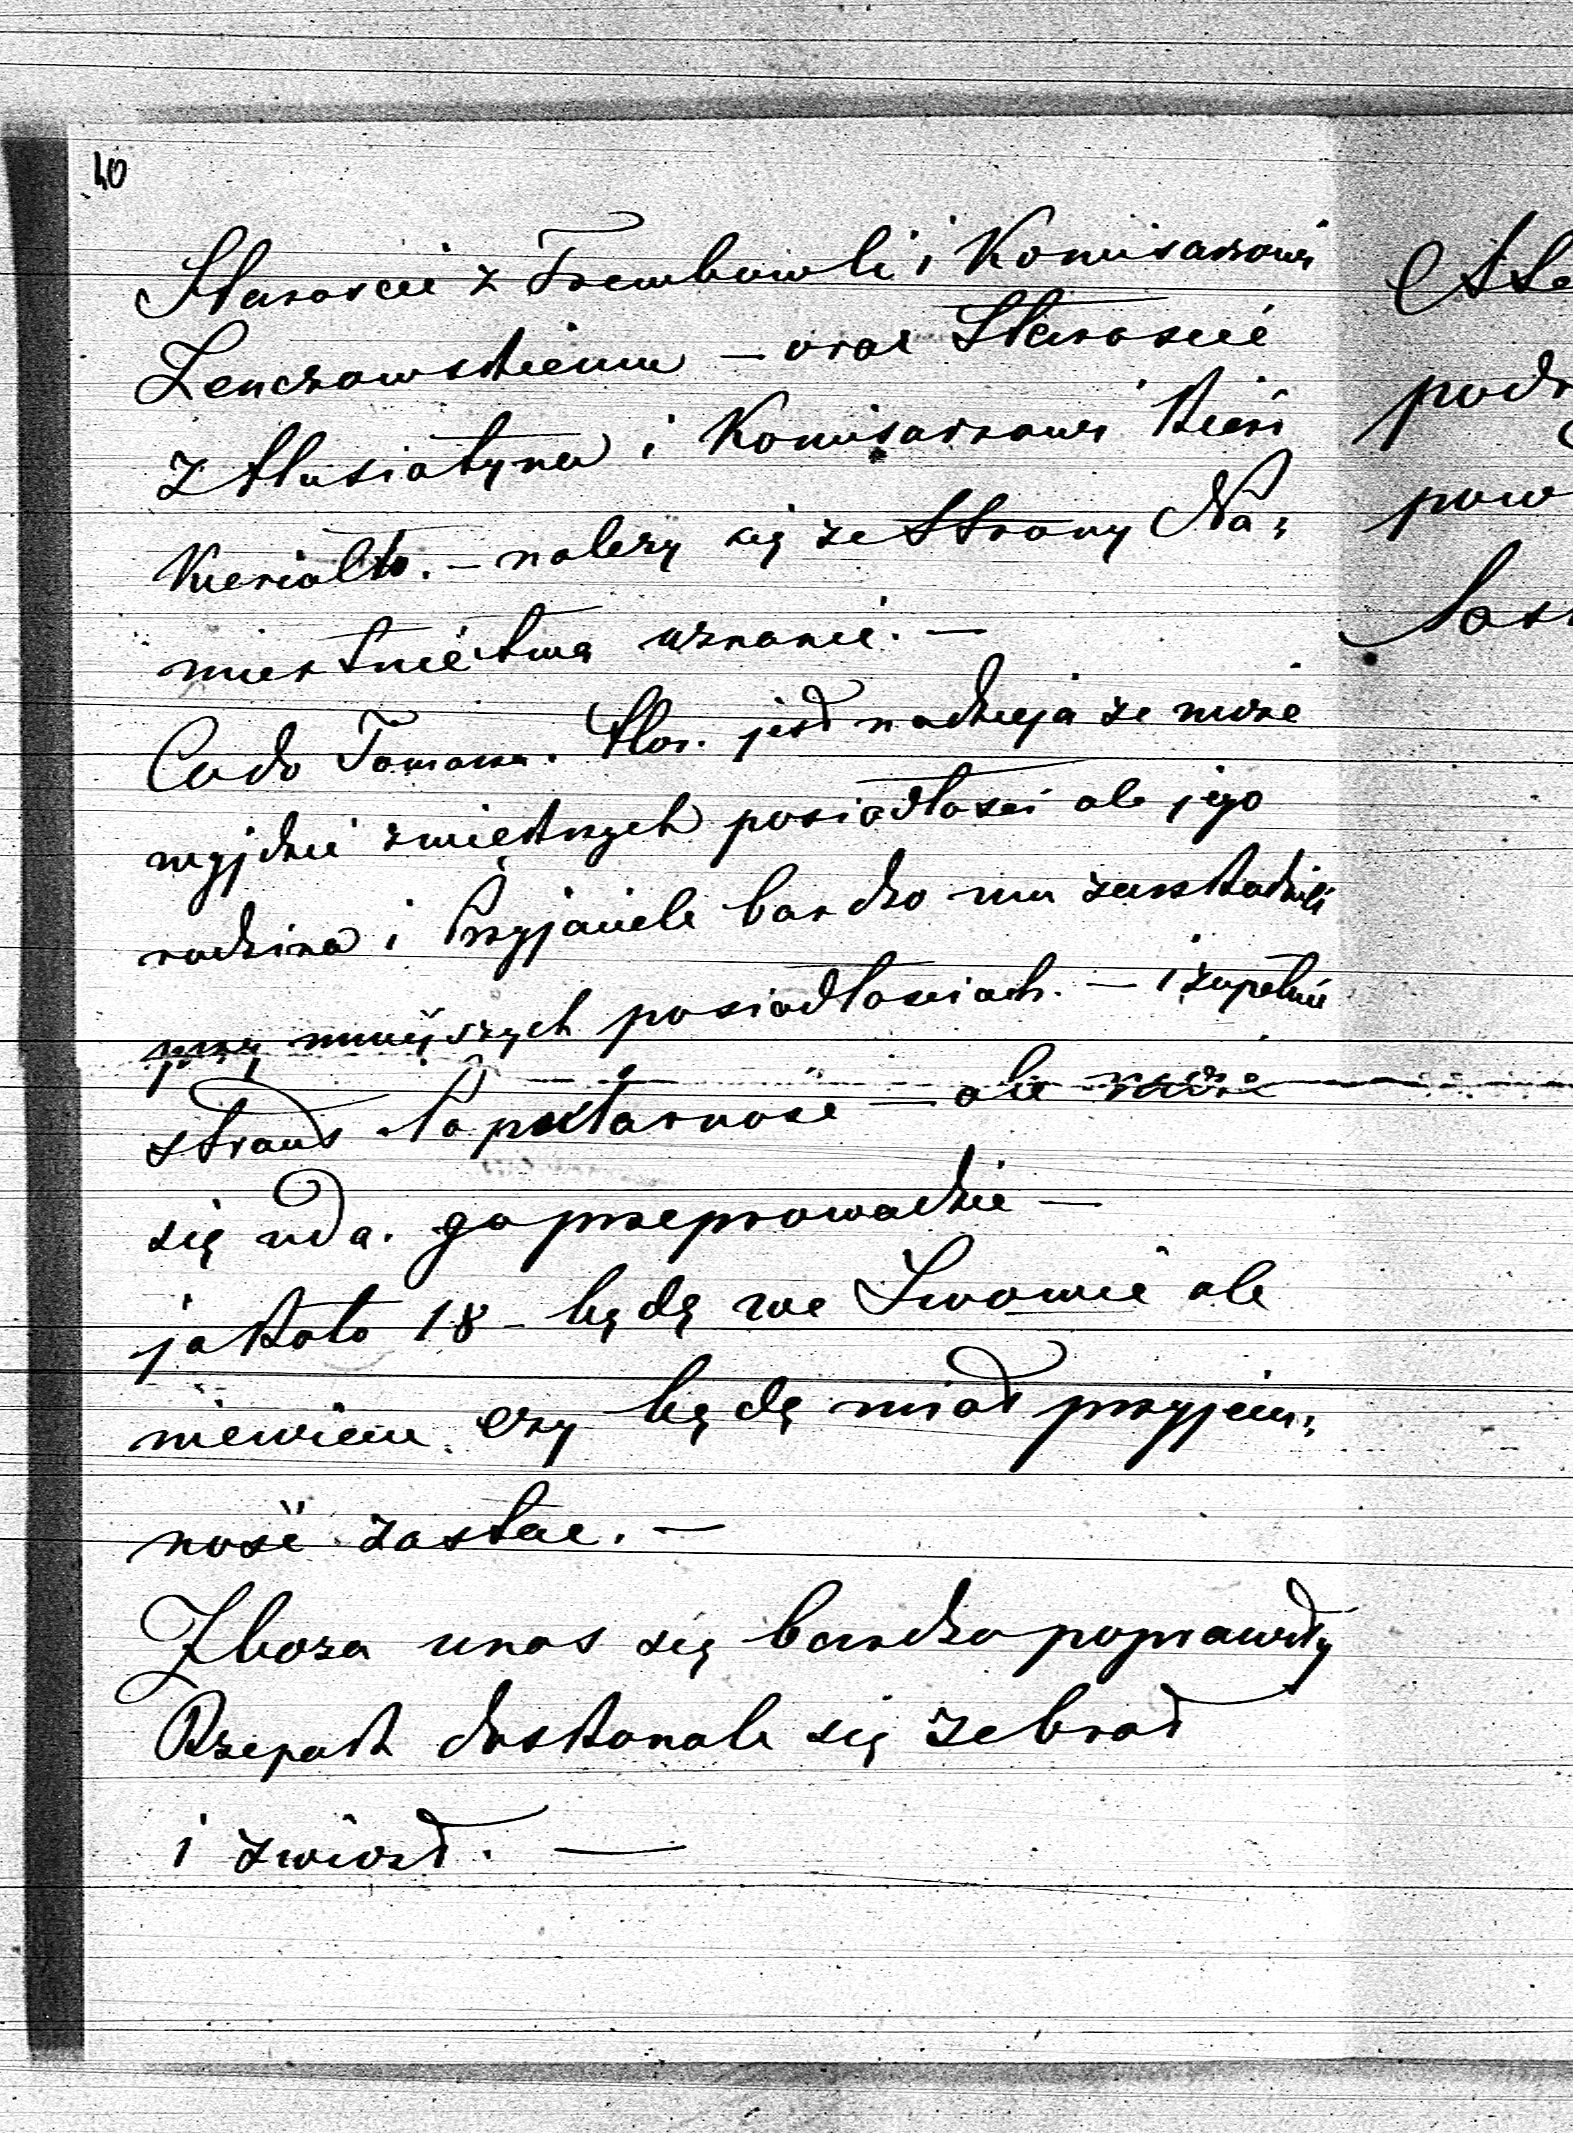 40
Staroscie z Trembowli i Komisarzowi
Lenczowskiemu — oraz Staroscie
z Husiatyna i Komisarzowi
należy się ze strony Na:
miestnictwa uznanie. —
Co do Tomasza Hor. jest nadzieja ze może
wyjdzie z większych posiadłosci ale jego
rodzina i Przyjaciele bardzo mu zaszkodzili
przy mniejszych posiadłosciach. — i zupełnie
stracił popularnosc — ale może
się uda go przeprowadzic —
ja koło 18 - będę we Lwowie ale
niewiem czy będę miał przyjem:
nosć zastac. —
Zboza unas się bardzo poprawiły
Rzepak doskonale się zebrał
i zwiozł. —
podz
pow